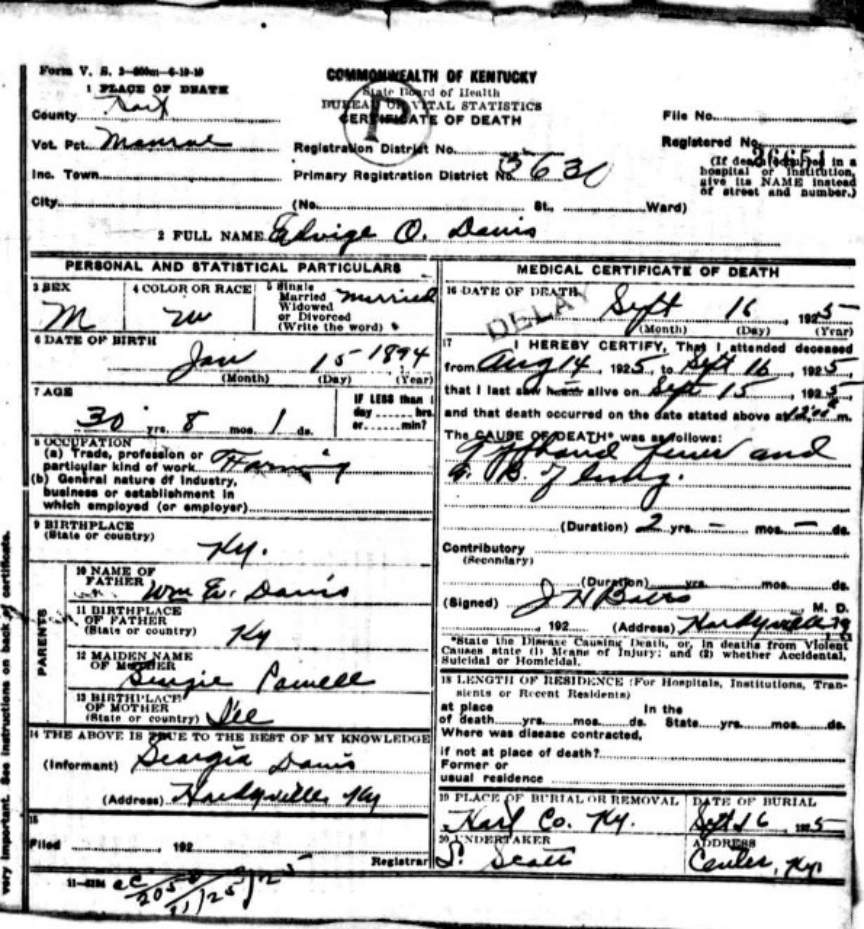 Form V. S.
COMMONWEALTH OF KENTUCKY
State Board of Health
BUREAU OF VITAL STATISTICS
CERTIFICATE OF DEATH
1 PLACE OF DEATH
County
Vot. Pct. Monroe
Inc. Town
City
Registration District No.
Primary Registration District No. 3630
(No. St., Ward)
File No.
Registered No.
(If death occurred in a
hospital or institution,
give its NAME instead
of street and number.)
2 FULL NAME O. Davis
PERSONAL AND STATISTICAL PARTICULARS
3 SEX
M
4 COLOR OR RACE
W
5 Single
Married
Widowed
or Divorced
(Write the word)
Married
6 DATE OF BIRTH
Jan 15 1894
(Month) (Day) (Year)
7 AGE
30 yrs. 8 mos. 1 ds.
IF LESS than 1
day hrs.
or min?
8 OCCUPATION
(a) Trade, profession or
particular kind of work Farming
(b) General nature of industry,
business or establishment in
which employed (or employer)
9 BIRTHPLACE
(State or country)
Ky.
PARENTS
10 NAME OF
FATHER
Wm E. Davis
11 BIRTHPLACE
OF FATHER
(State or country)
Ky
12 MAIDEN NAME
OF MOTHER
13 BIRTHPLACE
OF MOTHER
(State or country)
14 THE ABOVE IS TRUE TO THE BEST OF MY KNOWLEDGE
(Informant) Georgia Davis
(Address) Hardyville, Ky
15
Filed , 192
Registrar
MEDICAL CERTIFICATE OF DEATH
16 DATE OF DEATH
DELAY
Sept 16, 1925
(Month) (Day) (Year)
17 I HEREBY CERTIFY, That I attended deceased
from Aug 14, 1925, to Sept 16, 1925,
that I last saw h alive on Sept 15, 1925,
and that death occurred on the date stated above at m.
The CAUSE OF DEATH* was as follows:
Typhoid fever and
T. B. of lung.
(Duration) 2 yrs. - mos. - ds.
Contributory
(Secondary)
(Duration) yrs. mos. ds.
(Signed) J H M. D.
, 192 (Address) Hardyville
*State the Disease Causing Death, or, in deaths from Violent
Causes state (1) Means of Injury; and (2) whether Accidental,
Suicidal or Homicidal.
18 LENGTH OF RESIDENCE (For Hospitals, Institutions, Tran-
sients or Recent Residents)
at place In the
of death yrs. mos. ds. State yrs. mos. ds.
Where was disease contracted,
if not at place of death?
Former or
usual residence
19 PLACE OF BURIAL OR REMOVAL
Hart Co. Ky.
DATE OF BURIAL
Sept 16, 1925
20 UNDERTAKER
S. Scott
ADDRESS
Center, Ky
very important. See instructions on back of certificate.